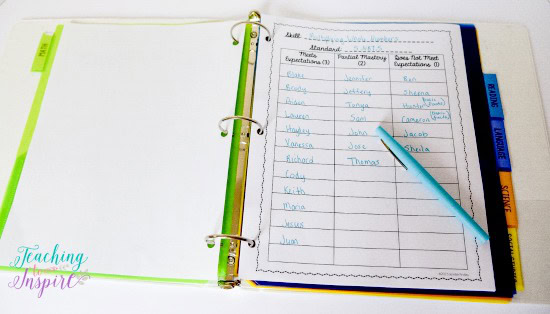 MATH
Skill: Multiplying Whole Numbers
Standard: 5.NBT.5
Meets Expectations (3) Partial Mastery (2) Does Not Meet Expectations (1)
Blake Jennifer Ben
Brody Jeffery Sheena
Aidan Tonya Hunter (basic facts)
Lauren Sam Cameron (basic facts)
Hayley John Jacob
Vanessa Jose Sheila
Richard Thomas
Cody
Keith
Maria
Jesus
Juan
READING
LANGUAGE
SCIENCE
Teaching
to
Inspire